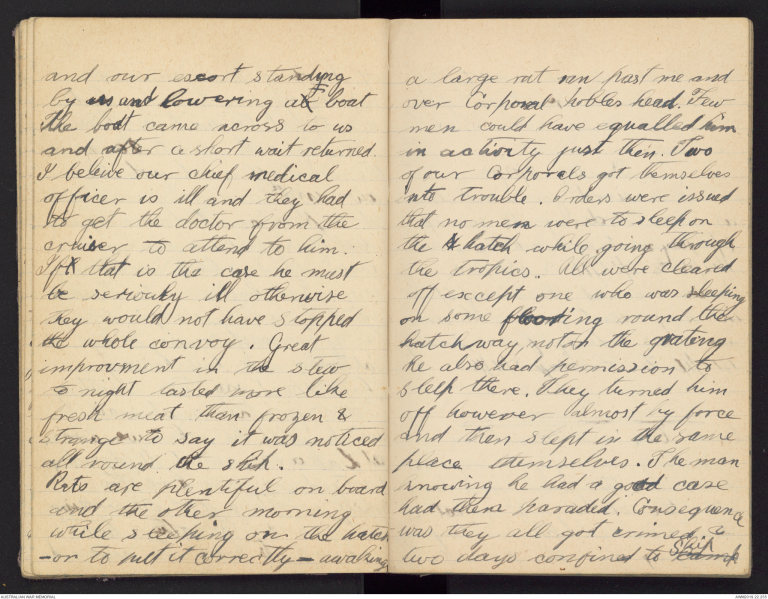 and our escort standing
by us and lowering a boat
the boat came across to us
and after a stort wait returned.
I beleive our chief medical
officer is ill and they had
to get the doctor from the
cruiser to attend to him.
If that is the case he must
be seriously ill otherwise
they would not have stopped
the whole convoy. Great
improvment in the stew
to night tasted more like
fresh meat than frozen &
strange to say it was noticed
all round the ship.
Rats are plentiful on board
and the other morning
while sleeping on the hatch
- or to put it correctly - awaking
a large rat ran past me and
over Corporal hobles head. Few
men could have equalled him
in activity just then. Two
of our Corporals got themselves
into trouble. Orders were issued
that no men were to sleep on
the hatch while going through
the tropics. All were cleared
off except one who was sleeping
on some flooring round the
hatchway not on the grating
he also had permission to
sleep there. They turned him
off however almost by force
and then slept in the same
place themselves. The man
knowing he had a good case
had them paraded. Consequence
was they all got crimed &
two days confined to ship
AUSTRALIAN WAR MEMORIAL